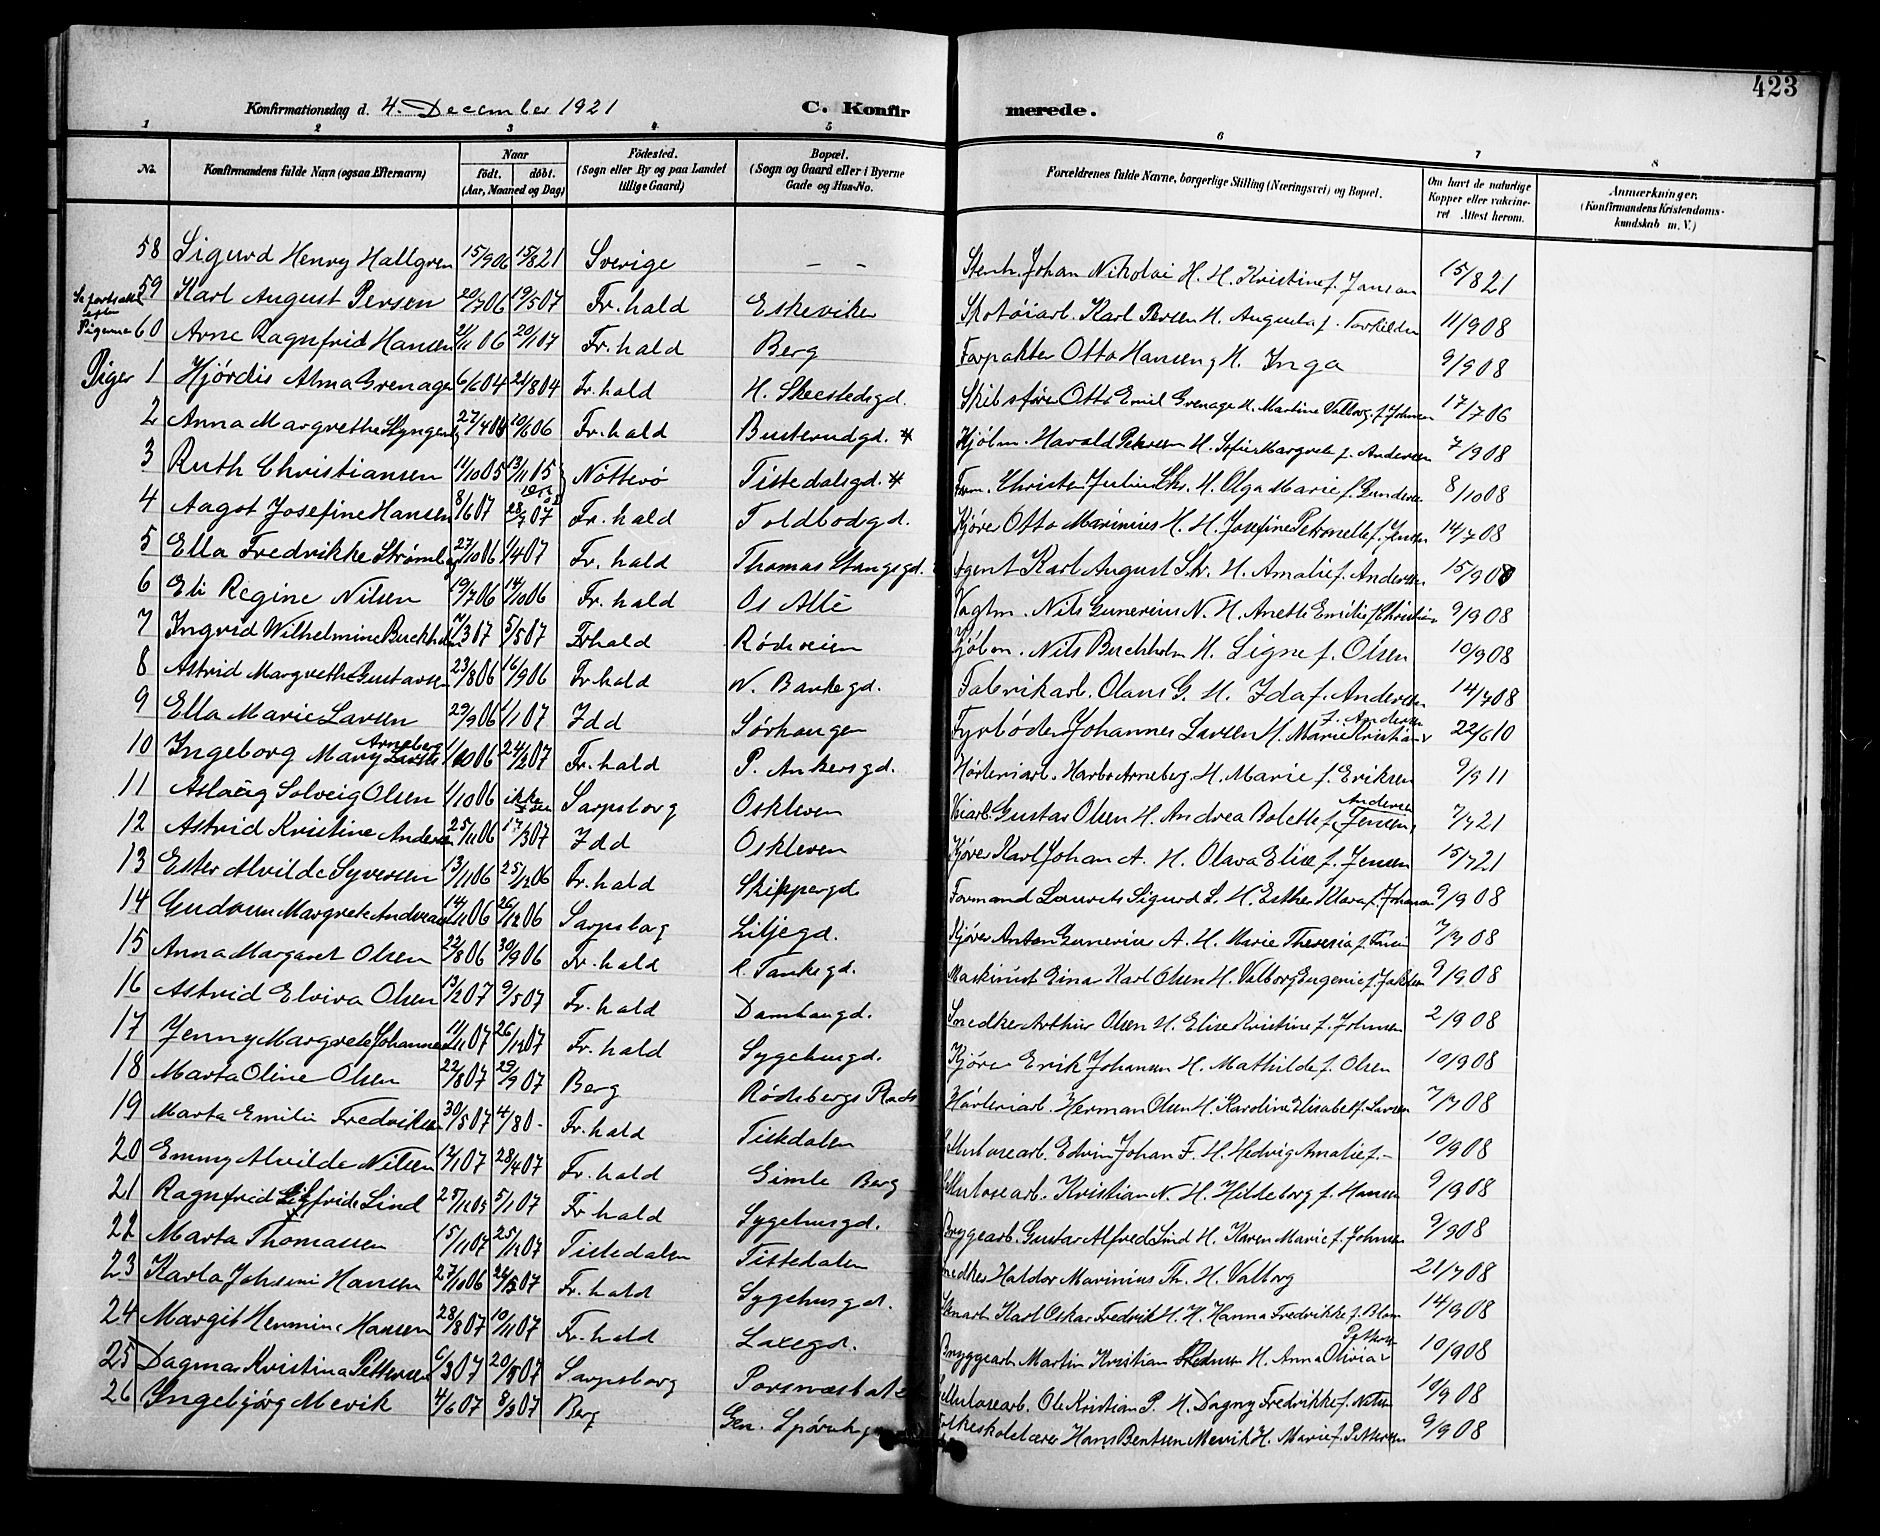 423
Konfirmationsdag d. 4. December 1921 C. Konfir merede.
1 2 3 4 5 6 7 8
No. Konfirmandens fulde Navn (ogsaa Efternavn) Naar født. døbt. (Aar, Maaned og Dag) Födested. (Sogn eller By og paa Landet tillige Gaard) Bopæl. (Sogn og Gaard eller i Byerne Gade og Hus-No. Forældrenes fulde Navne, borgerlige Stilling (Næringsvei) og Bopæl. Om havt de naturlige Kopper eller vakcineret Attest herom. Anmærkninger. (Konfirmandens Kristendomskundskab m. V.)
58 Sigurd Henry Hallgren 15/9 06 15/8 21 Sverige — — Stenh. Johan Nikolai H. H. Kristine f. Janson 15/8 21
59 Karl August Persen 20/7 06 19/5 07 Fr. hald Eskeviken Skotøiarb. Karl Persen H. Augusta f. Torkildsen 11/9 08
efter Pigerne 60 Arne Ragnfrid Hansen 21/11 06 20/1 07 Fr. hald Berg Forpakter Otto Hansen, H. Inga 9/9 08
Piger 1 Hjørdis Alma Grenager 6/6 04 21/8 04 Fr. hald H. Skeestedsgd. Skibsfører Otto Emil Grenage H. Martine Valborg f. Johnsen 17/7 06
2 Anna Margrethe 27/4 06 10/6 06 Fr. hald Busterudgd. Kjøbm. Harald Petersen H. Sofie Margrete f. Andersen 7/9 08
3 Ruth Christiansen 11/10 05 13/11 15 Nøtterø Tistedalsgd. Form. Christen Julius Chr. H. Olga Marie f. Gundersen 8/10 08
4 Aagot Josefine Hansen 8/6 07 28/7 07 Fr. hald Toldbodgd. Kjører Otto Marinius H. H. Josefine Petronelle f. Jensen 14/7 08
5 Ella Fredrikke Strømberg 27/10 06 1/4 07 Fr. hald Thomas Stangsgd. Agent Karl August Str. H. Amalie f. Andersen 15/9 08
6 Eli Regine Nilsen 19/7 06 14/10 06 Fr. hald Os Allé Vagtm. Nils Gunerius N. H. Anette Emilie f. Christian 9/9 08
7 Ingrid Wilhelmine Buchholm 3 07 5/5 07 Frhald Rødsveien Kjøbm. Nils Buchholm H. Signe f. Olsen 10/9 08
8 Astrid Margrethe Gustavsen 23/8 06 16/9 06 Fr. hald N. Bankegd. Fabrikarb. Olaus G. H. Ida f. Andersen 14/7 08
9 Ella Marie Larsen 29/9 06 1/1 07 Idd Sørhaugen Fyrbøder Johannes Larsen H. Marie Kristian f. Andersen 22/6 10
10 Ingeborg Mary Arneberg 1/10 06 24/2 07 Fr. hald P. Ankersgd. Harbo Arneberg H. Marie f. Eriksen 9/9 11
11 Aslaug Solveig Olsen 1/10 06 ikke Sarpsborg Oskleven Veiarb. Gustav Olsen H. Andrea Bolette f. Jensen Andersen 7/7 21
12 Astrid Kristine Andersen 25/11 06 17/3 07 Idd Oskleven Kjører Karl Johan A. H. Olava Elise f. Jensen 15/7 21
13 Ester Alvilde Syversen 13/11 06 25/12 06 Fr. hald Skippergd. Formand Laurets Sigurd S. H. Esther Klara f. Johansen 9/9 08
14 Gudrun Margrete Andersen 14/11 06 26/12 06 Sarpsborg Liljegd. Kjører Anton Gunerius A. H. Marie Theresia f. 7/7 08
15 Anna Margaret Olsen 22/8 06 30/9 06 Fr. hald l. Tankegd. Maskinist Einar Karl Olsen H. Valborg Eugenie f. Jakobsen 9/9 08
16 Astrid Elvira Olsen 13/2 07 9/5 07 Fr. hald Damhaugd. Snedker Arthur Olsen H. Elise Kristine f. Johnsen 2/9 08
17 Jenny Margrete Johannesen 11/11 07 26/12 07 Fr. hald Sygehusgd. Kjører Erik Johansen H. Mathilde f. Olsen 10/9 08
18 Marta Oline Olsen 22/8 07 29/9 07 Berg Rødsbergs Plads Herman Olsen H. Karoline Elisabet f. Larsen 7/7 08
19 Marta Emilie Fredriksen 30/5 07 4/8 0- Fr. hald Tistedalen Cellulosearb. Edvin Johan F. H. Hedvig Amalie f. - 10/9 08
20 Emmy Alvilde Nilsen 12/1 07 28/4 07 Fr. hald Gimle Berg Cellulosearb. Kristian N. H. Hildeborg f. Hansen 9/9 08
21 Ragnfrid Sigfride Lind 25/11 05 5/1 07 Fr. hald Sygehusgd. Bryggearb. Gustav Alfred Lind H. Karen Marie f. Johnsen 9/9 08
22 Marta Thomassen 15/11 07 25/12 07 Tistedalen Tistedalen Snedker Haldor Marinius Th. H. Valborg 21/7 08
23 Karla Johanne Hansen 27/10 06 07 Fr. hald Sygehusgd. Stenarb. Karl Oskar Fredrik H. H. Hanna Fredrikke f. Blom 14/9 08
24 Margit Hermine Hansen 28/8 07 10/11 07 Fr. hald Laxegd. Bryggearb Martin Kristian H. Anna Olivia Petters 10/9 08
25 Dagmar Kristina Pettersen 6/3 07 20/5 07 Sarpsborg Porsnæsbak Cellulosearb. Ole Kristian P. H. Dagny Fredrikke f. Nilsen 10/9 08
26 Ingebjørg Mevik 4/6 07 8/9 07 Berg Gen. Folkeskolelærer Hans Bentsen Mevik H. Marie f. Pettersen 9/9 08